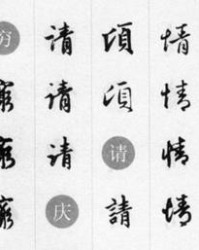 情情情情
頃頃请請
请请请庆
穷窮窮窮